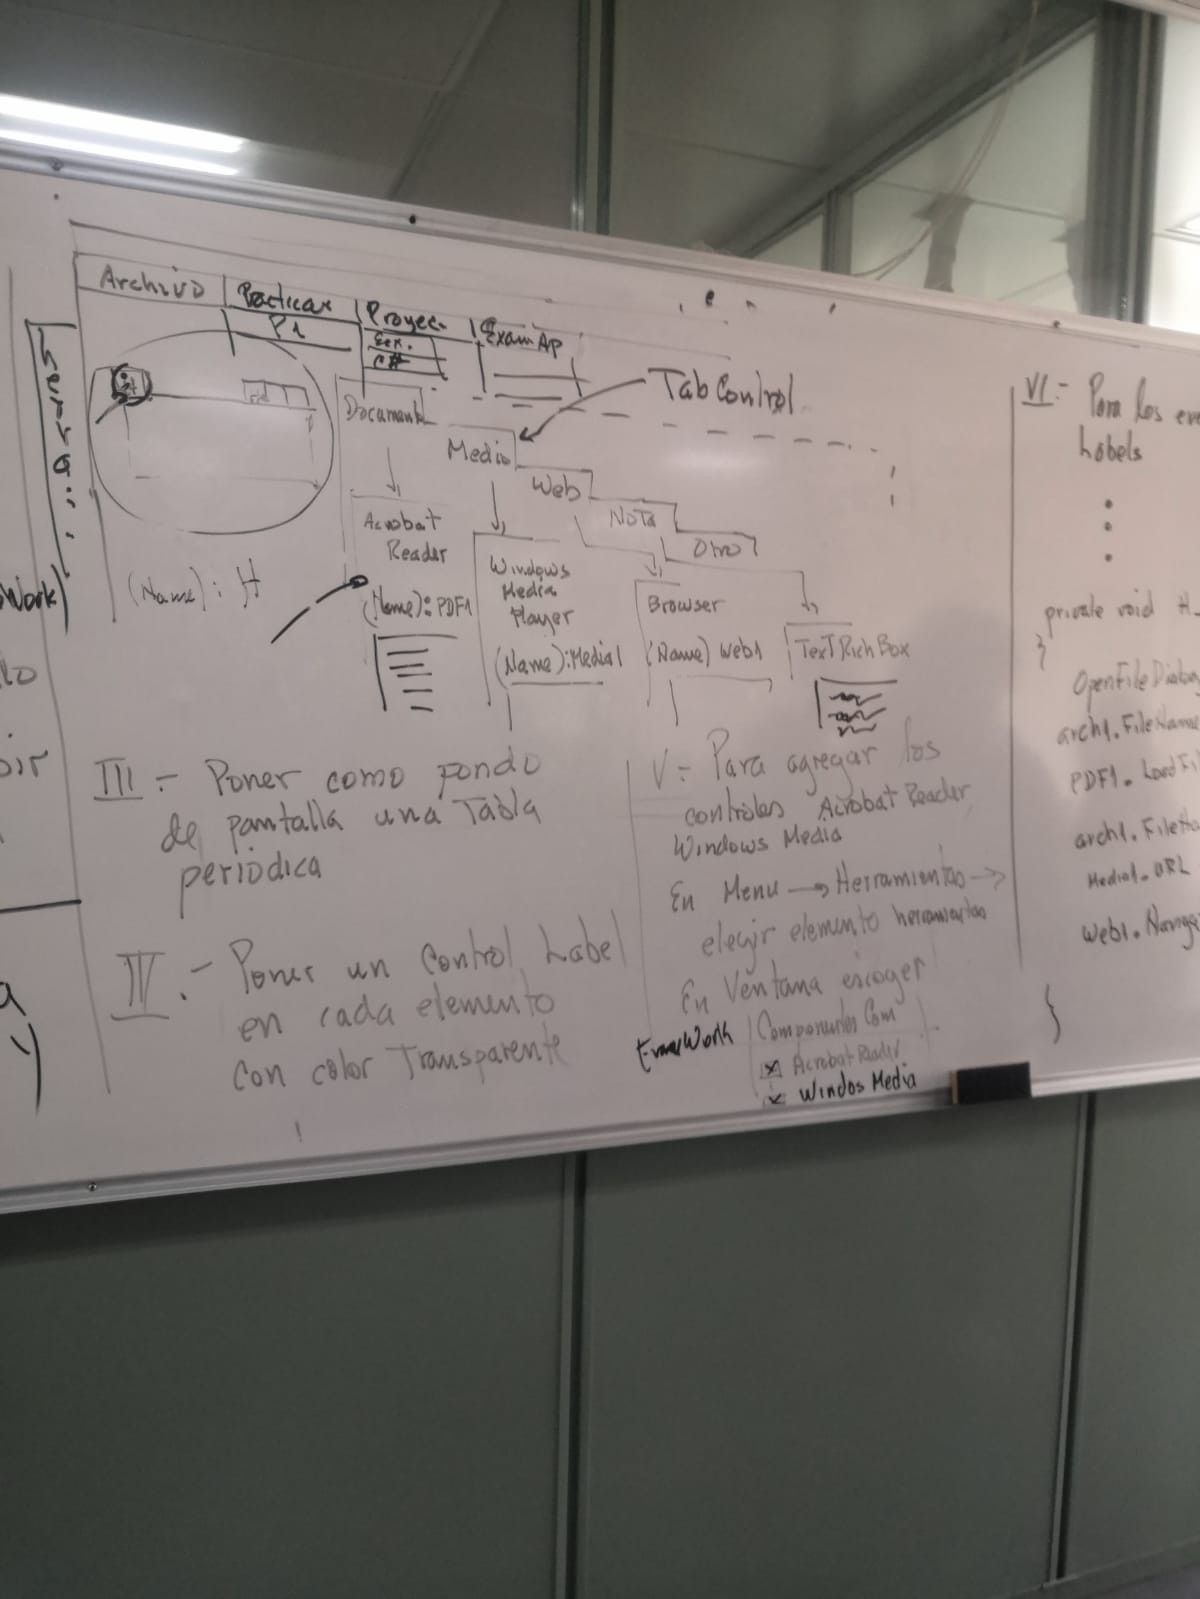 Archivo | Practicas | Proyec.. | Exam AP
P1
C#
herra...
Document
Medio
Web
Nota
Otro
Tab Control
Acrobat
Reader
(Name): PDF1
Windows
Media
Player
(Name): Media1
Browser
(Name) Web1
TexTRichBox
(Name): H
Work)
III.- Poner como fondo
de pantalla una Tabla
periódica
IV.- Poner un Control Label
en cada elemento
Con color Transparente
V.- Para agregar los
controles Acrobat Reader
Windows Media
En Menu → Herramientas →
elegir elemento herramientas
En Ventana escoger
Componentes Com
Acrobat Reader
Windos Media
VI.- Para los eve
Labels
private void H_
}
OpenFileDialog
arch1.FileName
PDF1.LoadFil
arch1.FileNa
Media1.URL
Web1.Naviga
}